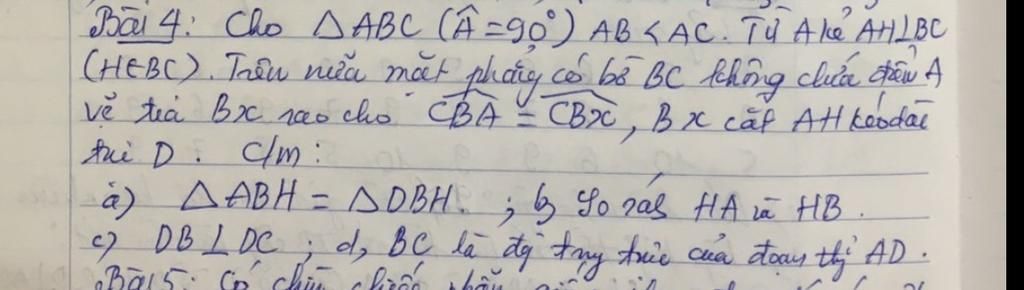 Bài 4: Cho △ABC (Â=90°) AB < AC. Từ A kẻ AH⊥BC
(H∈BC). Trên nửa mặt phẳng có bờ BC không chứa điểm A
vẽ tia Bx sao cho \widehat{CBA} = \widehat{CBx}, Bx cắt AH kéo dài
tại D. C/m:
a) △ABH = △DBH. ; b, So sánh HA và HB.
c) DB ⊥ DC ; d, BC là đg trung trực của đoạn thg AD.
Bài 5: Có